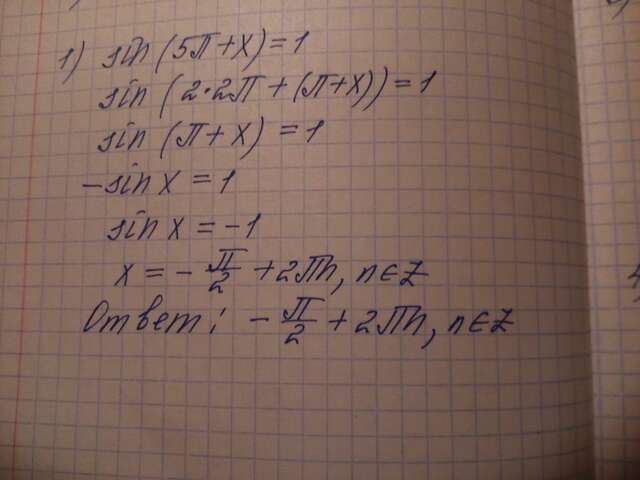 1) sin(5π+x)=1
sin(2·2π+(π+x))=1
sin(π+x)=1
-sin x = 1
sin x = -1
x = -π/2 + 2πn, n∈Z
Ответ: -π/2 + 2πn, n∈Z